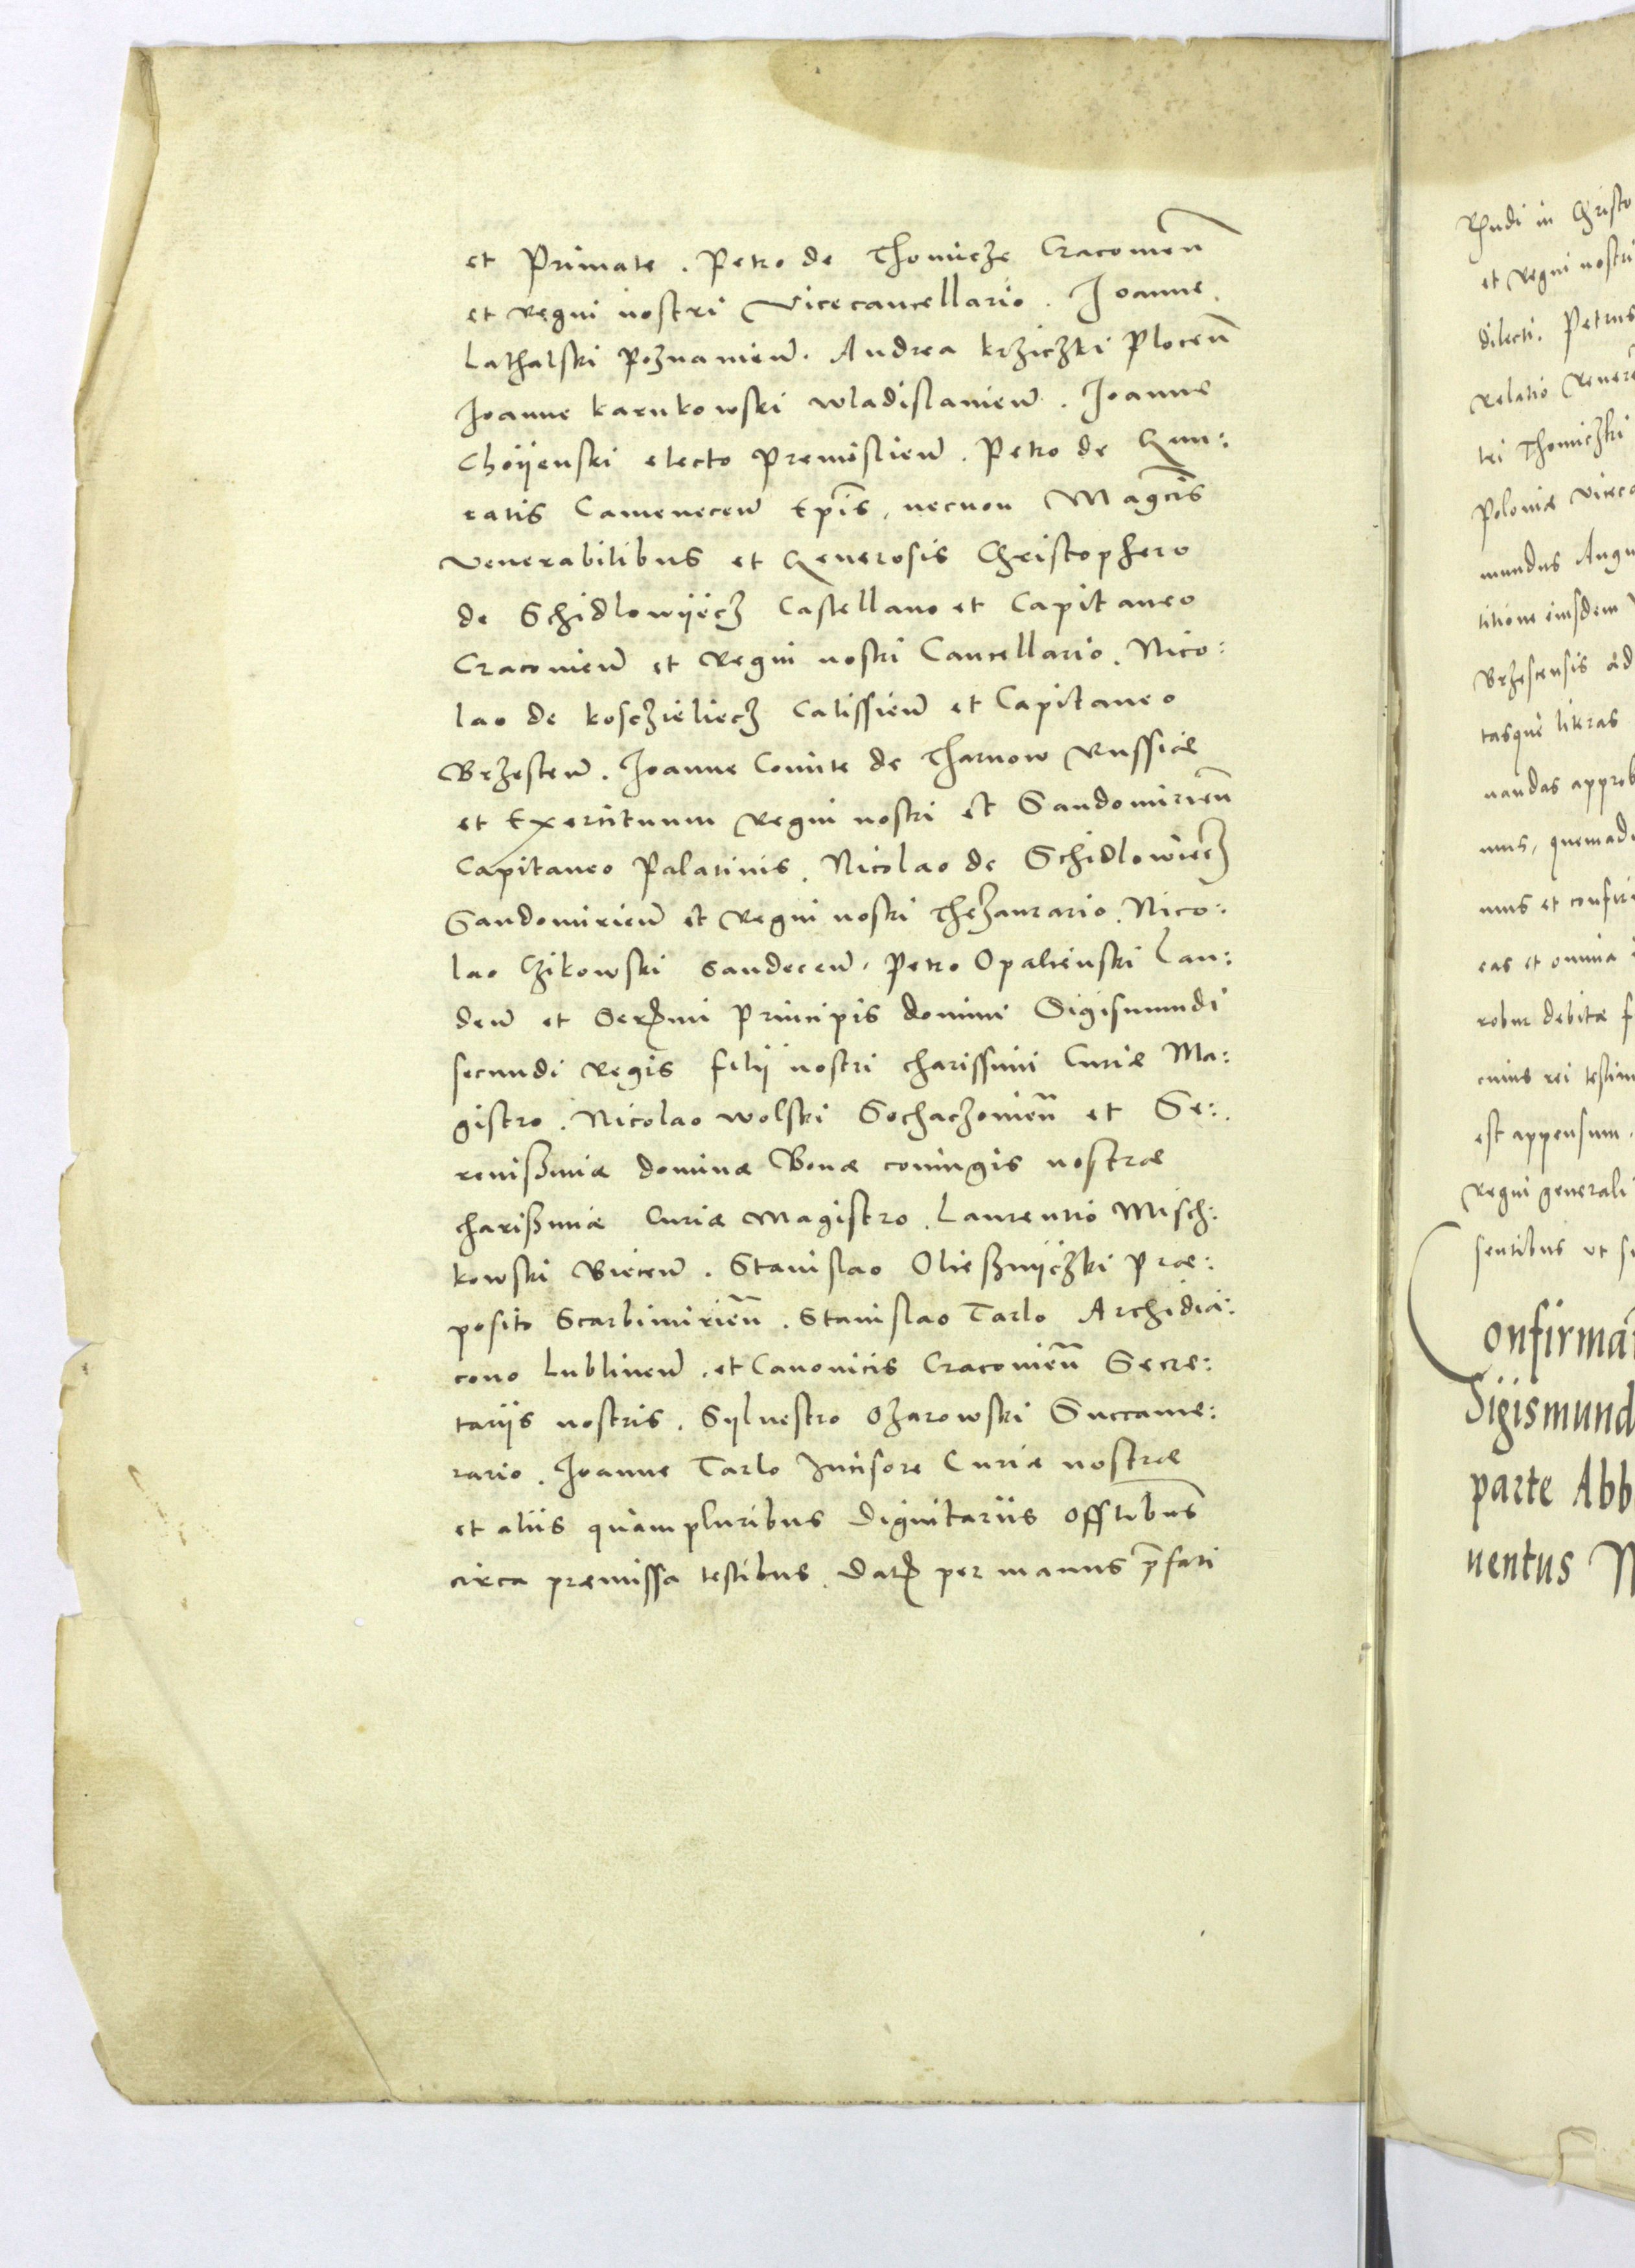 et Primate. Petro de Thomicze Cracovieñ
et Regni nostri Vicecancellario. Joanne
Lathalski Poznanieñ. Andrea krziczki Ploceñ
Joanne karnkowski wladislavieñ. Joanne
Choijenski electo Premislieñ. Petro de Gam:
ratis Cameneceñ Epĩs, necnon Magcĩs
Venerabilibus et Generosis Christophero
de Schidlowijecz Castellano et Capitaneo
Cracovieñ et Regni nostri Cancellario. Nico:
lao de koszieliecz Calissieñ et Capitaneo
Brzesteñ. Joanne Comite de Tharnow Russiæ
et Exercituum Regni nostri et Sandomirieñ
Capitaneo Palatinis. Nicolao de Schidlowiecz
Sandomirieñ et Regni nostri Thezaurario. Nico:
lao Czikowski Sandeceñ. Petro Opalienski Lan:
deñ et Serm̃i Principis domini Sigismundi
secundi Regis filij nostri charissimi Curiæ Ma:
gistro. Nicolao wolski Sochaczovieñ et Se:
renißimæ dominæ Bonæ coniugis nostræ
charißimæ Curiæ Magistro. Laurentio Misch:
kowski Bieceñ. Stanislao Oließnijczki Præ:
posito Scarbimirieñ. Stanislao Tarlo Archidia:
cono Lublineñ. et Canonicis Cracovieñ Secre:
tarijs nostris. Sylvestro Ozarowski Succame:
rario. Joanne Tarlo Incisore Curiæ nostræ
et aliis quampluribus Dignitariis Offlibus
circa præmissa testibus. Dat̃ per manus p̃fati
Rñdi in Christo
et Regni nostri
dilecti. Petrus
Relatio Revere
tri Thomiczki
Poloniæ Viceca
mundus Augu
titione eiusdem
Brzescensis ad
tasque literas
nandas approb
mus, quemadm
mus et confir
eas et omnia
robur debitæ f
cuius rei testim
est appensum.
Regni generali
sentibus ut su
Confirmã
Sigismund
parte Abb
uentus